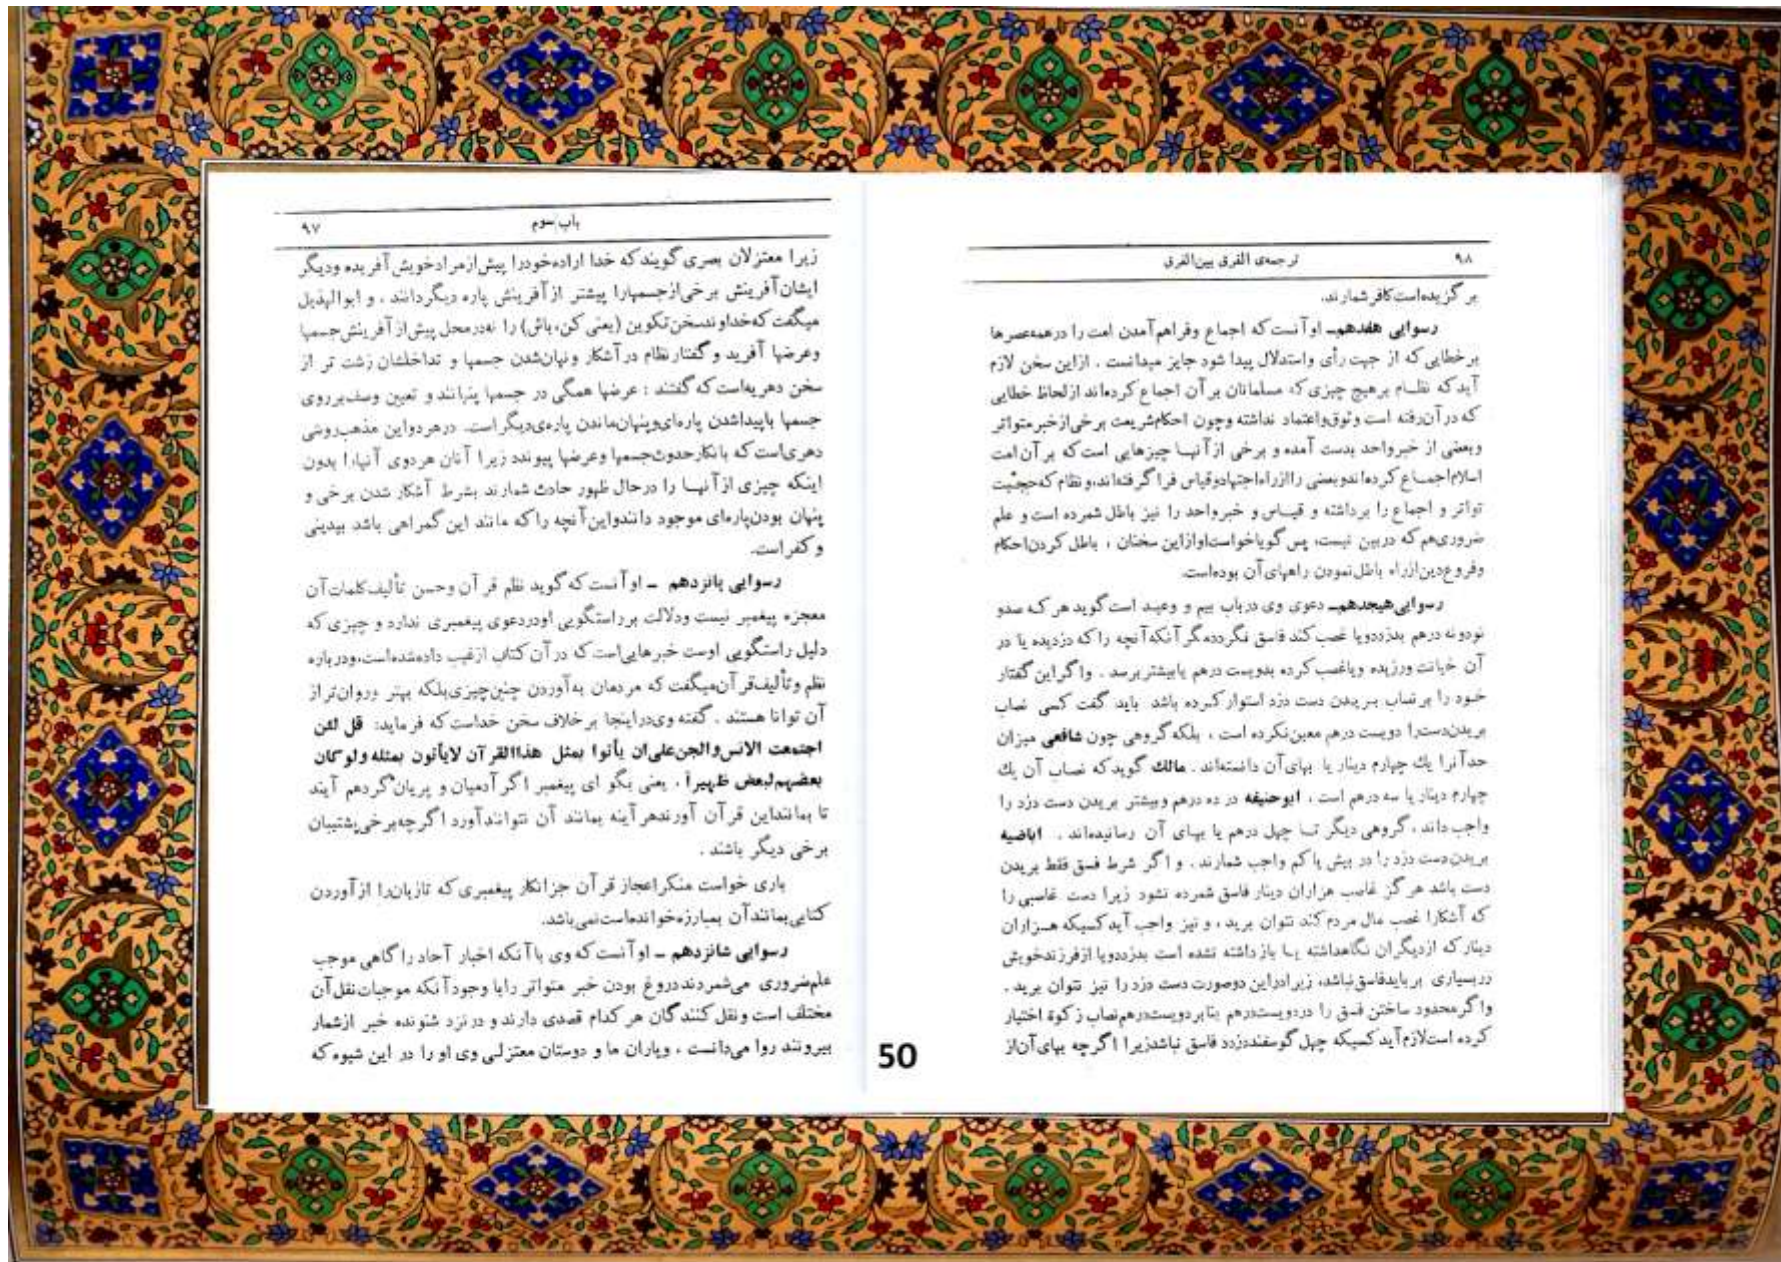 باب سوم ۹۷
زیرا معتزلان بصری گویند که خدا اراده خود را پیش از مراد خویش آفریده و دیگر
ایشان آفرینش برخی از جسمها را پیشتر از آفرینش پاره دیگر دانند . و ابوالهذیل
میگفت که خداوند سخن تکوین (یعنی کن، باش) را نه در محل پیش از آفرینش جسمها
وعرضها آفرید و گفتار نظام در آشکار و نهان شدن جسمها و تداخلشان زشت تر از
سخن دهریه است که گفتند : عرضها همگی در جسمها پنهانند و تعیین وصف بر روی
جسمها با پیدا شدن پاره‌ای و پنهان ماندن پاره‌ی دیگر است. در هر دو این مذهب روشی
دهری است که بانکار حدوث جسمها وعرضها پیوندد زیرا آنان هر دوی آنها را بدون
اینکه چیزی از آنها را در حال ظهور حادث شمارند بشرط آشکار شدن برخی و
پنهان بودن پاره‌ای موجود دانند و این آنچه را که مانند این گمراهی باشد بیدینی
و کفر است.
رسوایی پانزدهم – او آنست که گوید نظم قرآن وحسن تألیف کلمات آن
معجزه پیغمبر نیست ودلالت بر راستگویی او در دعوی پیغمبری ندارد و چیزی که
دلیل راستگویی اوست خبرهایی است که در آن کتاب از غیب داده شده است، و درباره
نظم و تألیف قرآن میگفت که مردمان به آوردن چنین چیزی بلکه بهتر وروان‌تر از
آن توانا هستند . گفته وی در اینجا بر خلاف سخن خداست که فرماید: قل لئن
اجتمعت الانس والجن علی ان یأتوا بمثل هذا القرآن لایأتون بمثله ولو کان
بعضهم لبعض ظهیراً ، یعنی بگو ای پیغمبر اگر آدمیان و پریان گرد هم آیند
تا بمانند این قرآن آورند هر آینه بمانند آن نتوانند آورد اگرچه برخی پشتیبان
برخی دیگر باشند .
باری خواست منکر اعجاز قرآن جز انکار پیغمبری که تازیان را از آوردن
کتابی بمانند آن بمبارزه خوانده است نمی‌باشد.
رسوایی شانزدهم – او آنست که وی با آنکه اخبار آحاد را گاهی موجب
علم ضروری می‌شمرد دروغ بودن خبر متواتر را با وجود آنکه موجبات نقل آن
مختلف است و نقل کنندگان هر کدام قصدی دارند و در نزد شنونده خبر از شمار
بیرونند روا می‌دانست ، ویاران ما و دوستان معتزلی وی او را در این شیوه که
۹۸ ترجمه‌ی الفرق بین الفرق
برگزیده است کافر شمارند.
رسوایی هفدهم– او آنست که اجماع وفراهم آمدن امت را در همه عصرها
بر خطایی که از جهت رأی واستدلال پیدا شود جایز میدانست . از این سخن لازم
آید که نظام بر هیچ چیزی که مسلمانان بر آن اجماع کرده‌اند از لحاظ خطایی
که در آن رفته است وثوق واعتماد نداشته وچون احکام شریعت برخی از خبر متواتر
وبعضی از خبر واحد بدست آمده و برخی از آنها چیزهایی است که بر آن امت
اسلام اجماع کرده‌اند و بعضی را از راه اجتهاد و قیاس فرا گرفته‌اند، و نظام که حجیّت
تواتر و اجماع را برداشته و قیاس و خبر واحد را نیز باطل شمرده است و علم
ضروری هم که در بین نیست، پس گویا خواست او از این سخنان ، باطل کردن احکام
وفروع دین از راه باطل نمودن راههای آن بوده است.
رسوایی هیجدهم– دعوی وی در باب بیم و وعید است گوید هر که صد و
نود و نه درهم بدزدد و یا غصب کند فاسق نگردد مگر آنکه آنچه را که دزدیده یا در
آن خیانت ورزیده ویا غصب کرده بدویست درهم یا بیشتر برسد . واگر این گفتار
خود را بر نصاب بریدن دست دزد استوار کرده باشد باید گفت کسی نصاب
بریدن دست را دویست درهم معین نکرده است ، بلکه گروهی چون شافعی میزان
حد آنرا یك چهارم دینار یا بهای آن دانسته‌اند . مالك گوید که نصاب آن یك
چهارم دینار یا سه درهم است ، ابوحنیفه در ده درهم وبیشتر بریدن دست دزد را
واجب داند ، گروهی دیگر تا چهل درهم یا بهای آن رسانیده‌اند . اباضیه
بریدن دست دزد را در بیش یا کم واجب شمارند . و اگر شرط فسق فقط بریدن
دست باشد هرگز غاصب هزاران دینار فاسق شمرده نشود زیرا دست غاصبی را
که آشکارا غصب مال مردم کند نتوان برید ، و نیز واجب آید کسیکه هزاران
دینار که از دیگران نگاهداشته یا باز داشته نشده است بدزدد و یا از فرزند خویش
در بسیاری برباید فاسق نباشد، زیرا در این دو صورت دست دزد را نیز نتوان برید .
واگر محدود ساختن فسق را در دویست درهم بنابر دویست درهم نصاب زکوة اختیار
کرده است لازم آید کسیکه چهل گوسفند دزدد فاسق نباشد زیرا اگر چه بهای آن از
50